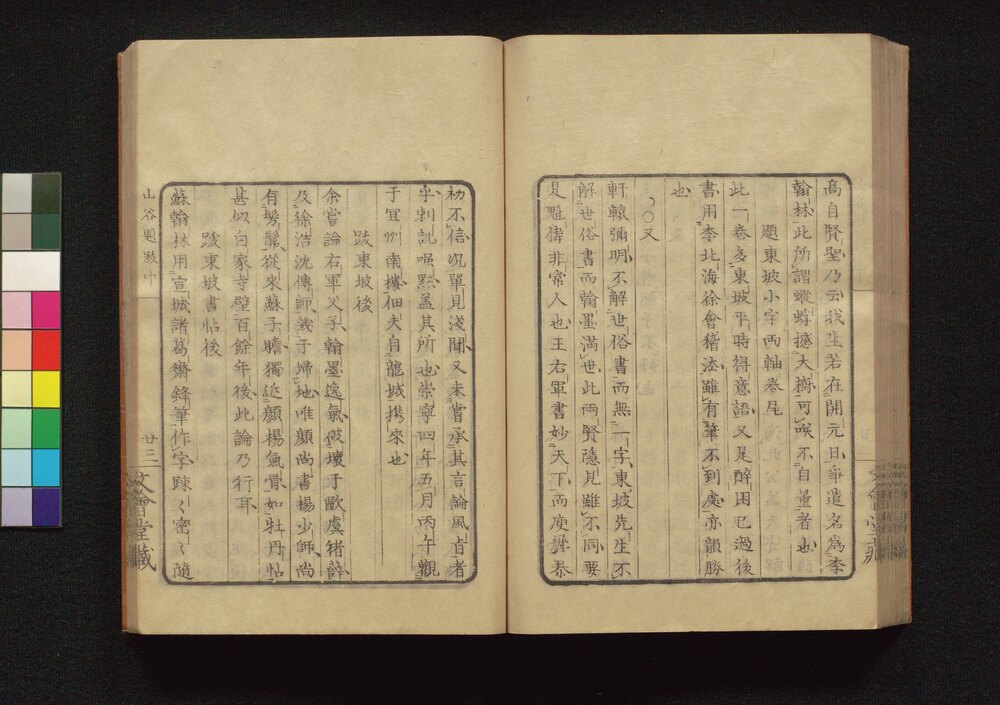 高自賢聖乃云我生若在開元日爭遣名為李
翰林此所謂蚍蜉撼大樹可咲不自量者也
題東坡小字兩軸卷尾
此一卷多東坡平時得意語又是醉困已過後
書用李北海徐會稽法雖有筆不到處亦韻勝
也
○又
軒轅彌明不解世俗書而無一字東坡先生不
解世俗書而翰墨滿世此兩賢隱見雖不同要
是魁偉非常人也王右軍書妙天下而庾稚恭
初不信況單見淺聞又未嘗承其言論風旨者
乎刺訕嗤點蓋其所也崇寧四年五月丙午觀
于宜州南樓佃夫自龍城携來也
跋東坡後
余嘗論右軍父子翰墨逸氣破壞于歐虞褚薛
及徐浩沈傳師幾于掃地惟顏尚書楊少師尚
有髣髴從來蘇子瞻獨近顏楊氣骨如牡丹帖
甚似白家寺壁百餘年後此論乃行耳
跋東坡書帖後
蘇翰林用宣城諸葛齊鋒筆作字疎〻密〻隨
山谷題跋中
廿三
文會堂藏